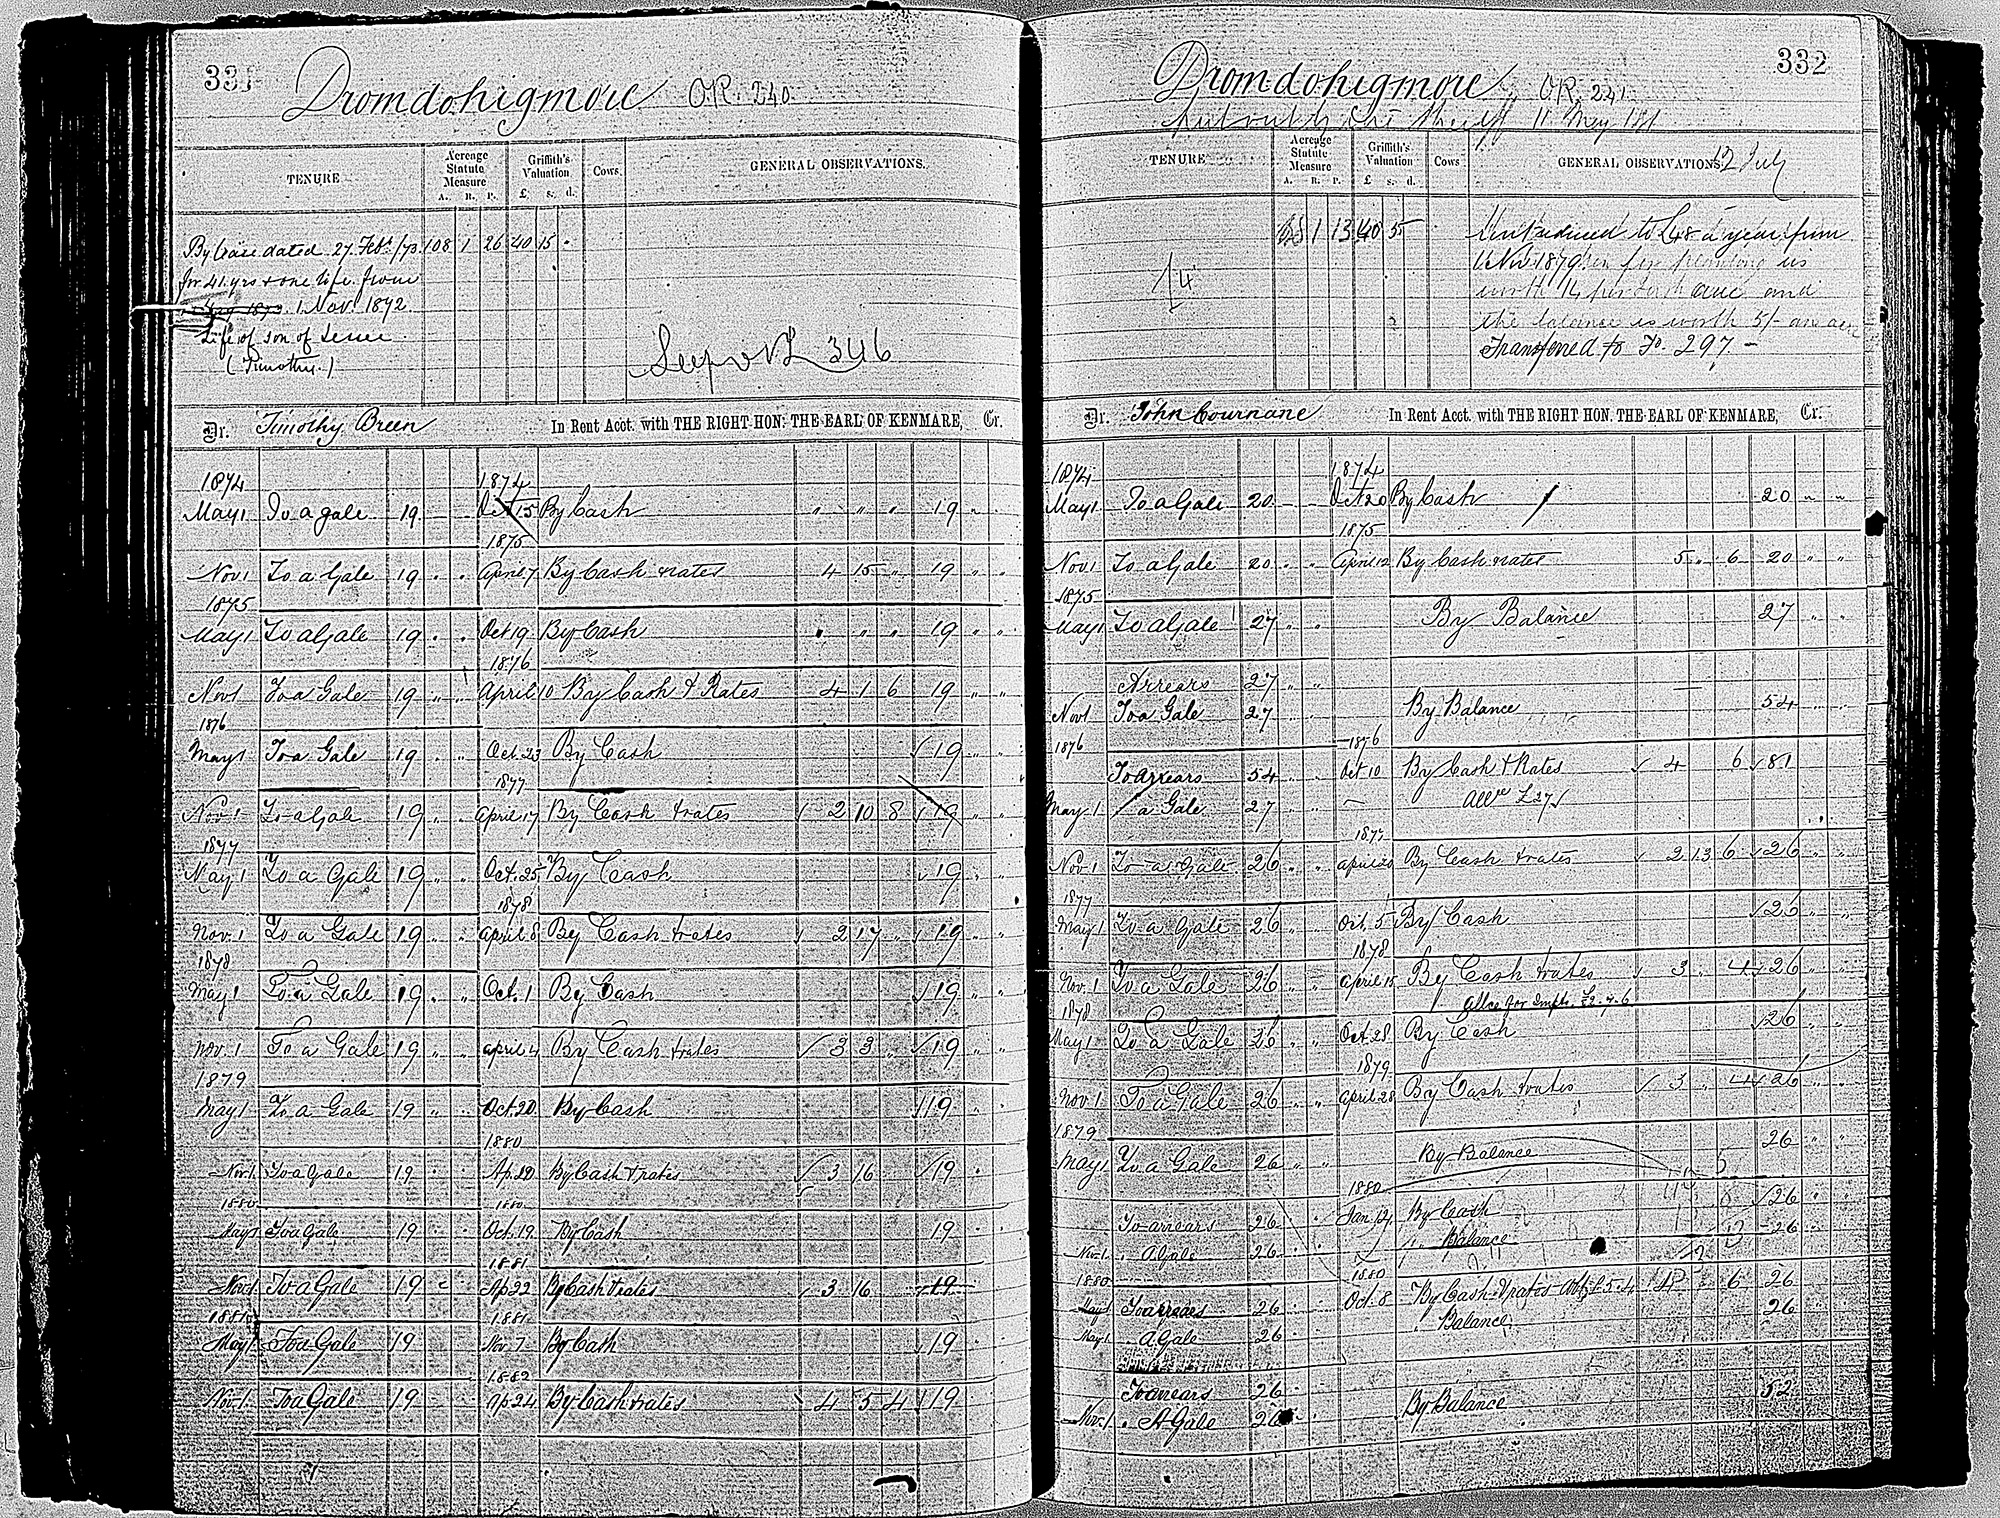 331
Dromdohigmore O.R. 240.
TENURE
Acreage Statute Measure
A. R. P.
Griffith's Valuation
£ s. d.
Cows.
GENERAL OBSERVATIONS.
By lease dated 27. Feb. /73 108 1 26 40 15 "
for 41 yrs & one life from
1 Nov. 1872.
Life of son of Lessee
(Timothy.)
346
Dr. Timothy Breen In Rent Acct. with THE RIGHT HON: THE EARL OF KENMARE, Cr.
1874 1874
May 1 To a gale 19 Oct 15 By Cash " " " 19 " "
1875
Nov 1 To a Gale 19 " " April 7 By Cash & rates 4 15 " 19 " "
1875
May 1 To a Gale 19 " " Oct 19 By Cash " " " 19 " "
1876
Nov 1 To a Gale 19 " " April 10 By Cash & Rates 4 1 6 19 " "
1876
May 1 To a Gale 19 " " Oct. 23 By Cash 19 "
1877
Nov. 1 To a Gale 19 " " April 17 By Cash & rates 2 10 8 19 " "
1877
May 1 To a Gale 19 " " Oct. 25 By Cash 19 " "
1878
Nov. 1 To a Gale 19 " " April 8 By Cash & rates 2 17 " 19 " "
1878
May 1 To a Gale 19 " " Oct. 1 By Cash 19 " "
Nov. 1 To a Gale 19 " " April 4 By Cash & rates 3 3 " 19 " "
1879
May 1 To a Gale 19 " " Oct. 20 By Cash 19 "
1880
Nov. 1 To a Gale 19 " Ap. 20 By Cash & rates 3 16 19 "
1880 1880
May 1 To a Gale 19 " Oct. 19 By Cash 19
1881
Nov 1 To a Gale 19 " Ap 22 By Cash & rates 3 16 19
1881 1881
May 1 To a Gale 19 Nov 7 By Cash 19
1882
Nov. 1 To a Gale 19 Ap 24 By Cash & rates 4 5 4 19
332
Dromdohigmore OR. 241.
11 May 181
TENURE
Acreage Statute Measure
A. R. P.
Griffith's Valuation
£ s. d.
Cows
GENERAL OBSERVATIONS
12 July
1 13 40 5
Rent reduced to £48 a year from
1 Nov. 1879
and
the balance is worth 5/- an acre
Transferred to Fo. 297. -
Dr. John Cournane In Rent Acct. with THE RIGHT HON. THE EARL OF KENMARE, Cr.
1874 1874
May 1 To a Gale 20 - - Oct 20 By Cash 20 " "
1875
Nov 1 To a Gale 20 " " April 12 By Cash & rates 5 " 6 20 " "
1875
May 1 To a Gale 27 " " By Balance 27 " "
Arrears 27 " "
Nov 1 To a Gale 27 " By Balance 54 " "
1876 1876
To arrears 54 " " Oct 10 By Cash & Rates 4 6 81
May 1 " a Gale 27 " " allce £27
1877
Nov 1 To a Gale 26 " " April 20 By Cash & rates 2 13 6 26 " "
1877
May 1 To a Gale 26 " " Oct. 5 By Cash 26 " "
1878
Nov. 1 To a Gale 26 " " April 15 By Cash & rates 3 " 4 26 " "
1878 allce for Impts. £2.4.6
May 1 To a Gale 26 " " Oct. 28 By Cash 26 " "
1879
Nov. 1 To a Gale 26 " " April 28 By Cash & rates 3 " 4 26 " "
1879
May 1 To a Gale 26 " " By Balance 26 " "
1880
To arrears 26 " Jan 12 By Cash 26 " "
Nov. 1 " A Gale 26 " " Balance 26 "
1880 1880
May 1 To arrears 26 " Oct. 8 By Cash & rates 6 26
May 1 " A Gale 26 " " Balance 26
To arrears 26 "
Nov. 1 " A Gale 26 By Balance 52